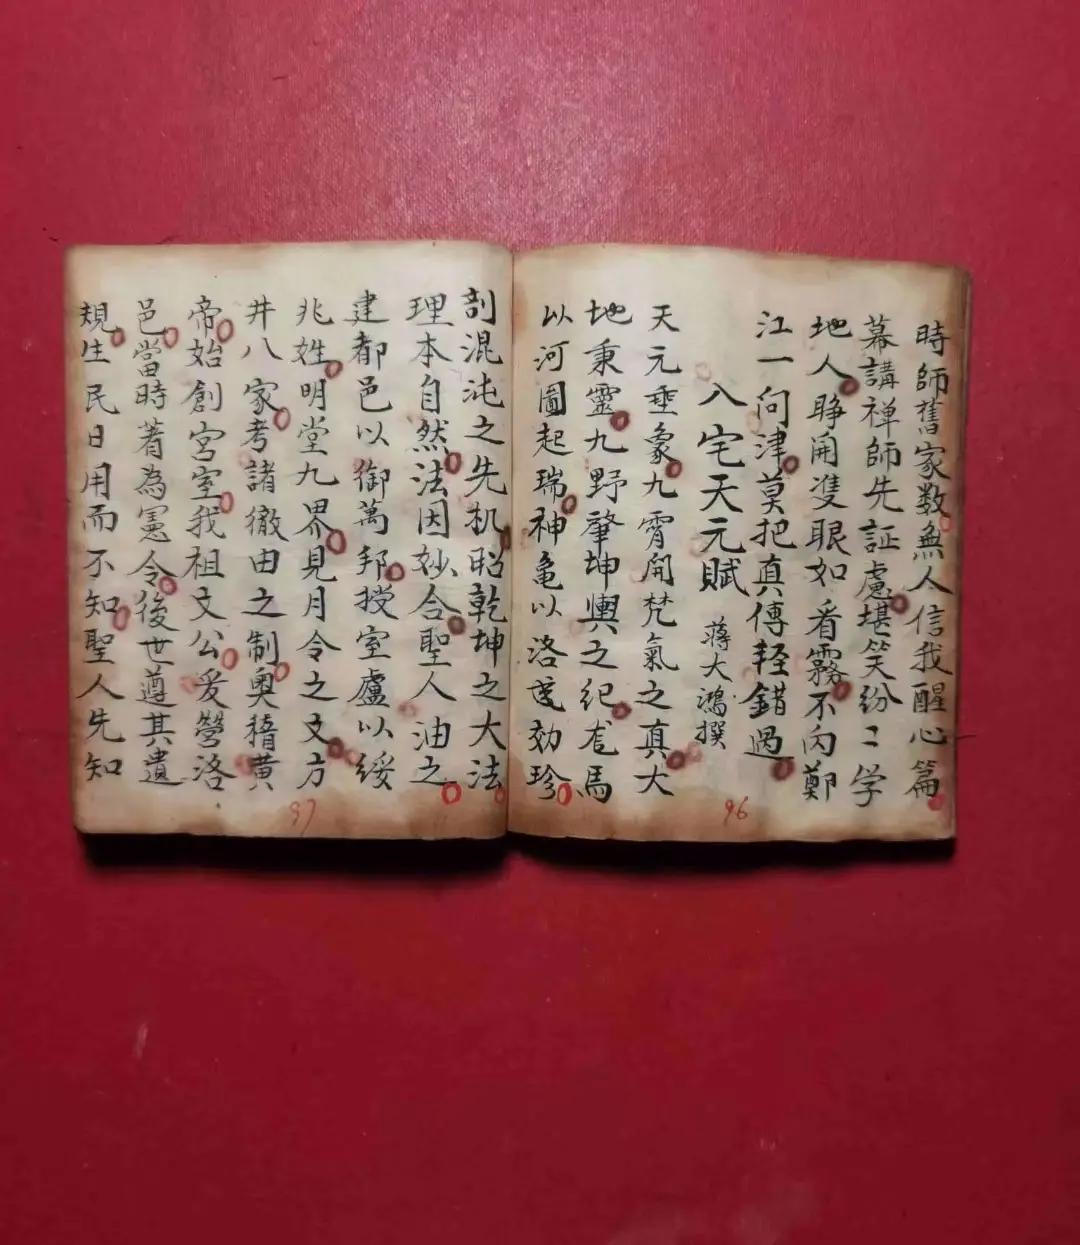 時師舊家数無人信我醒心篇
幕講禅師先証慮堪笑纷〻学
地人睁開隻眼如看霧不向鄭
江一问津莫把真傳轻錯過
八宅天元賦 蒋大鴻撰
天元垂象九霄開梵氣之真大
地秉靈九野肇坤輿之纪龙馬
以河圖起瑞神亀以洛茂効珍
剖混沌之先机昭乾坤之大法
理本自然法因妙合聖人油之
建都邑以御萬邦授室廬以绥
兆姓明堂九界見月令之文方
井八家考諸徹由之制奥稽黄
帝始創宫室我祖文公爰營洛
邑當時著為憲令後世遵其遺
規生民日用而不知聖人先知
96
97